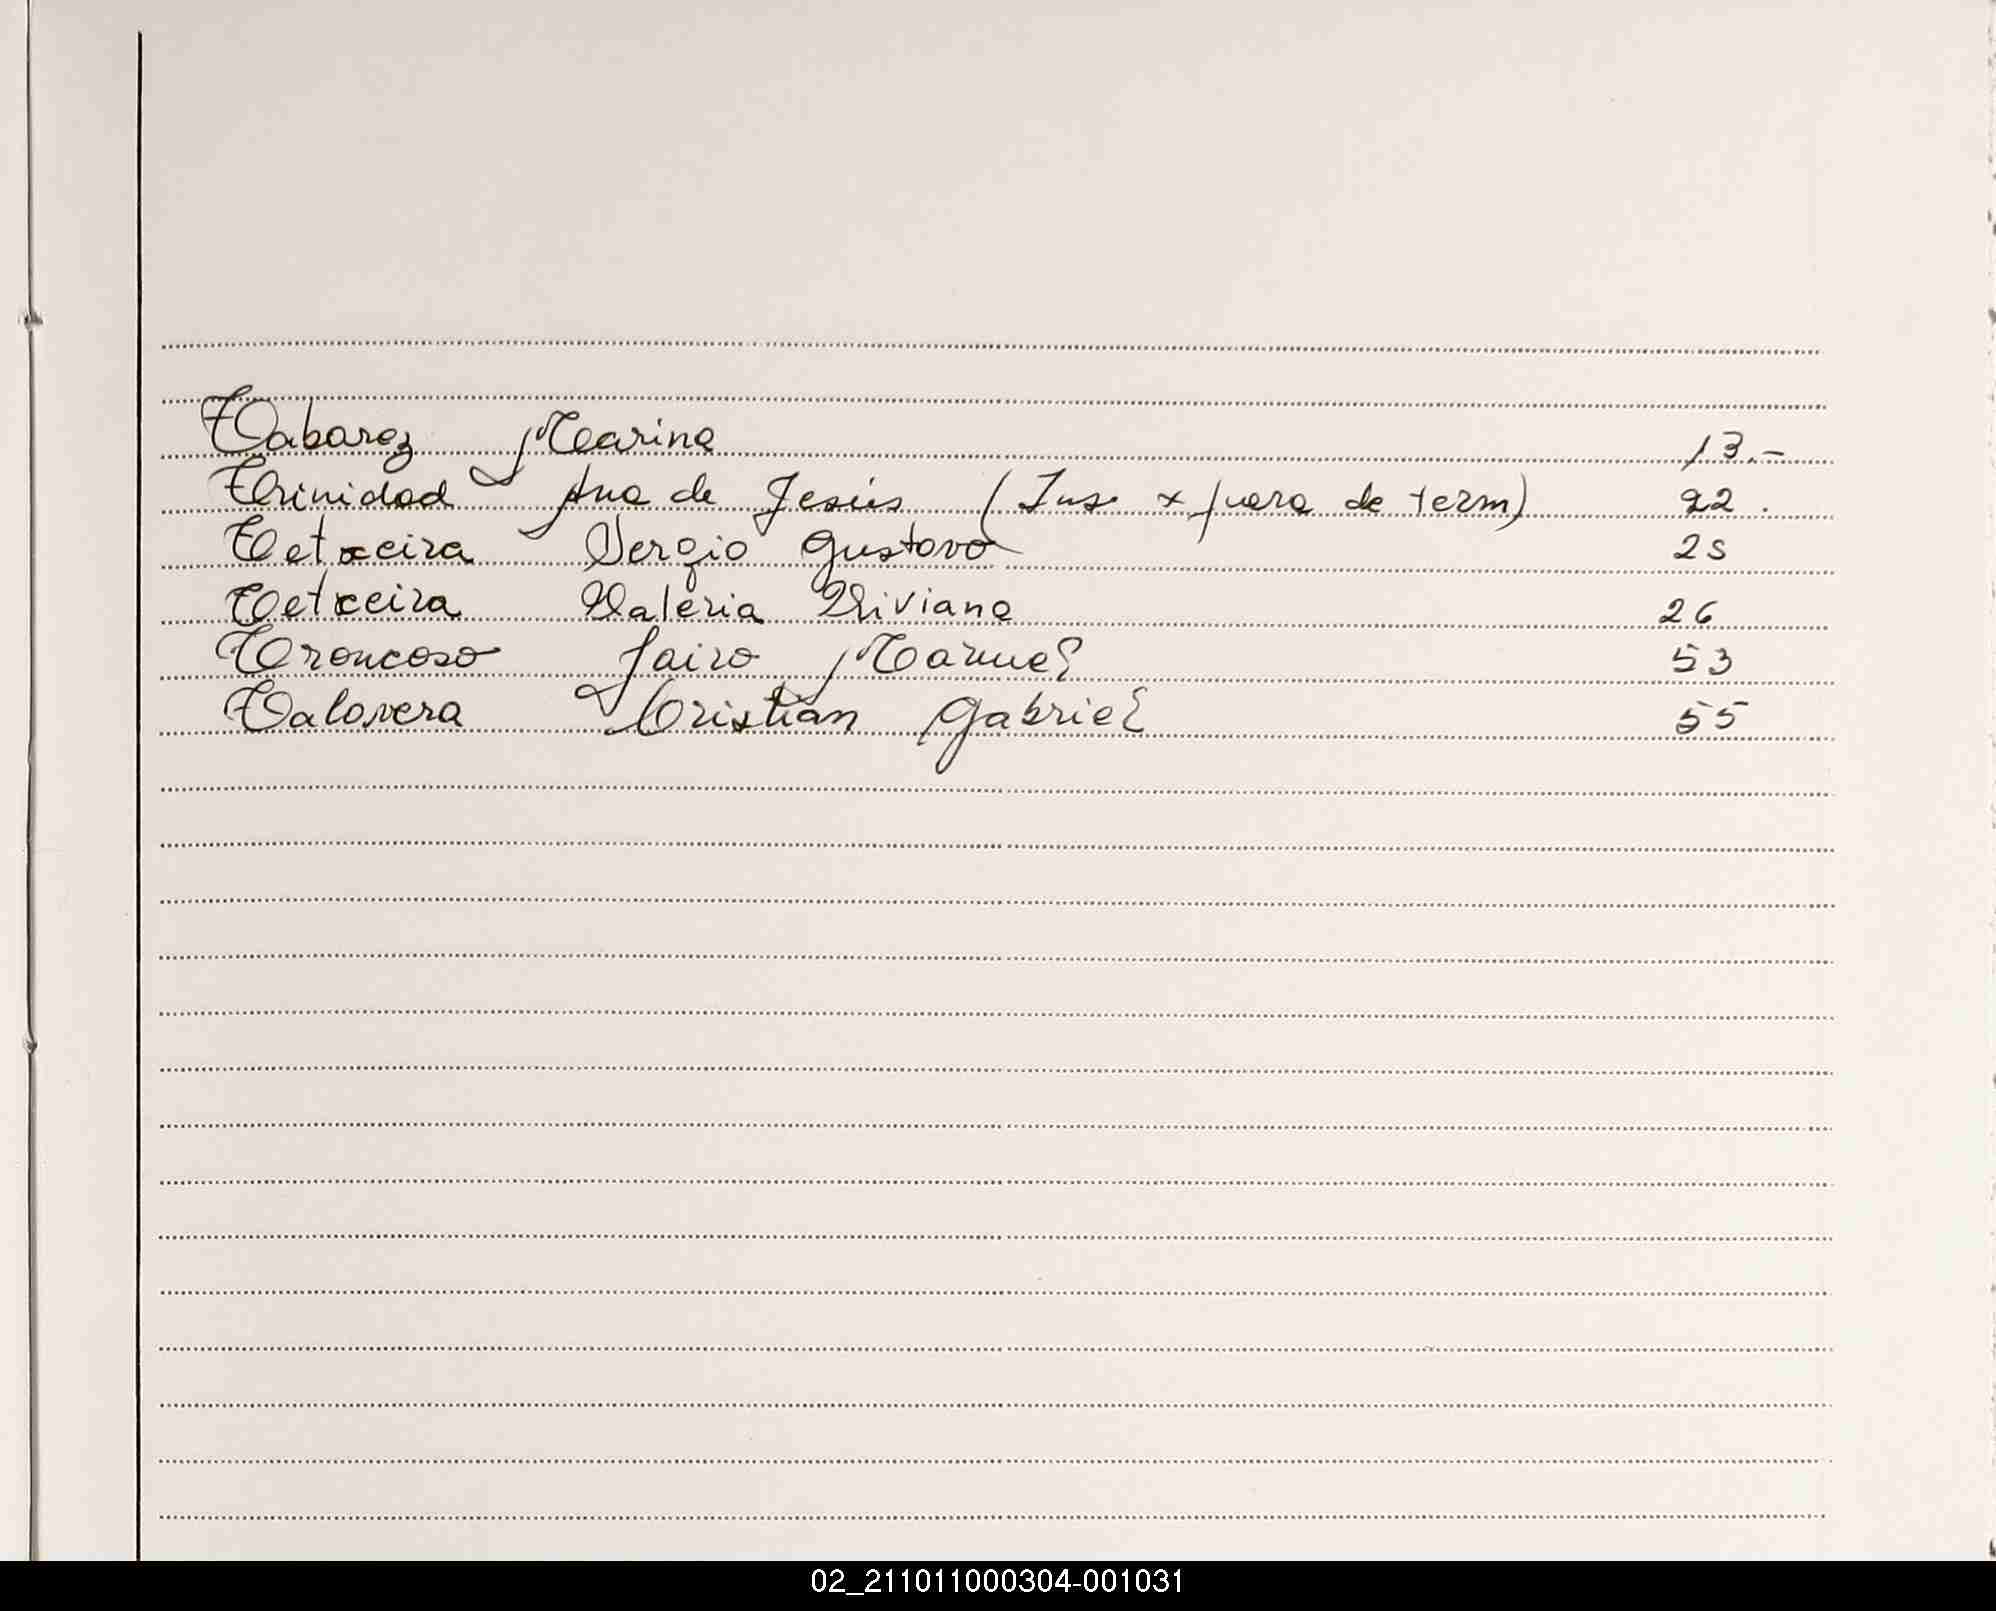 Tabarez Marina 13.-
Trinidad Ana de Jesús (Ins x fuera de term) 22.
Tetxeira Sergio Gustavo 25
Tetxeira Valeria Viviana 26
Troncoso Jairo Manuel 53
Talavera Cristian Gabriel 55
02_211011000304-001031